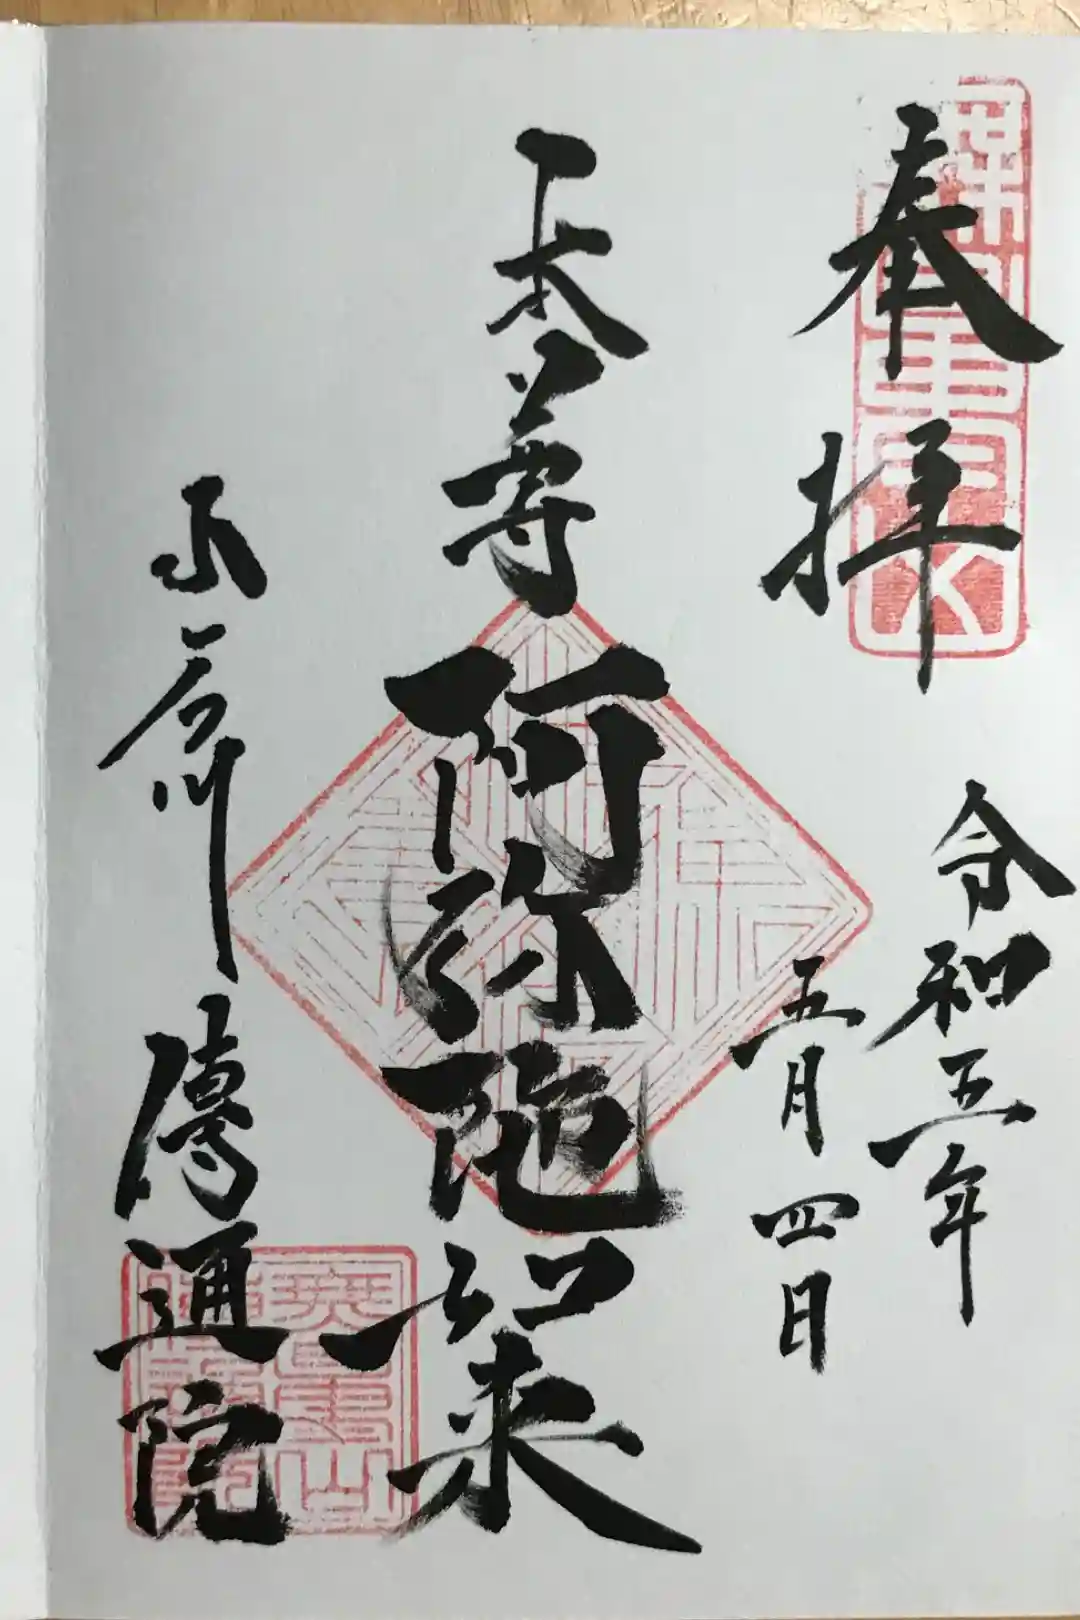 奉拝
令和五年
五月四日
本尊
阿弥陀如来
小石川
傳通院